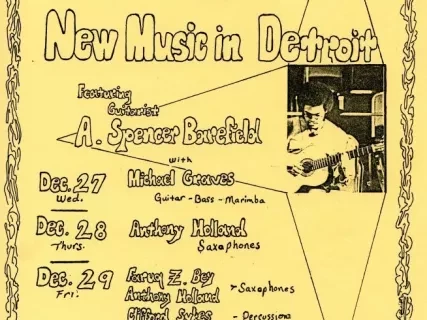 New Music in Detroit
Featuring
Guitarist
A. Spencer Barefield
with
Dec. 27 Michael Graves
Wed. Guitar - Bass - Marimba
Dec. 28 Anthony Holland
Thurs. Saxophones
Dec. 29 Faruq Z. Bey
Fri. Anthony Holland > Saxophones
Clifford Sykes - Percussion